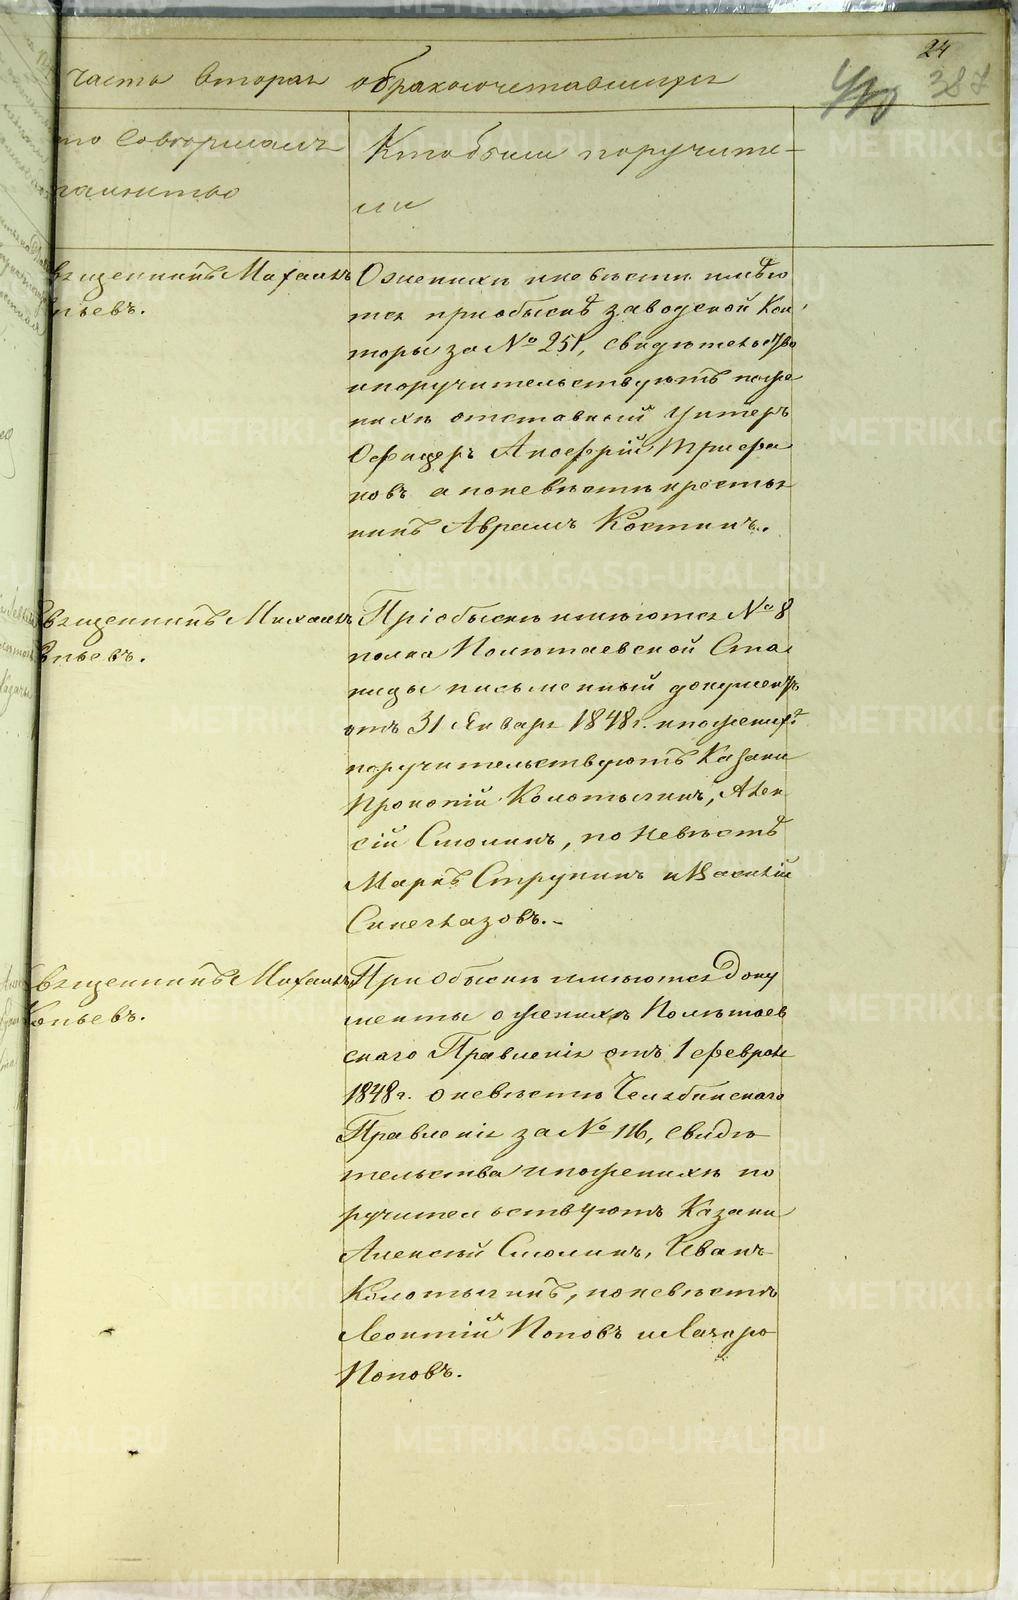 24
387
часть вторая о бракосочетавшихся
то совершалъ
таинство
Кто были поручите-
ли
вященникъ Михаилъ
пьевъ.
О женихѣ и невѣсте имѣю
тся при обыскѣ заводской Кон
торы за № 251, свидѣтельство
и поручительствуютъ по же
нихѣ отставный Унтеръ
Офицеръ Трифа
новъ а по невѣстѣ кресьтя
нинъ Аврамъ Костинъ.
вященникъ Михаилъ
пьевъ.
Пріобыскѣ имеютса № 8
полка Полѣтаевской Ста
ницы письменный документъ
отъ 31 Января 1848 г. и по женихѣ
поручительствуютъ Казаки
Прокопій Колотыгинъ, Алек
сій Смолинъ, по невѣстѣ
Маркъ Струнинъ и Василій
Синеглазовъ.-
Священникъ Михаилъ
Копьевъ.
При обыскѣ имеются Доку
менты о женихѣ Полѣтаев
скаго Правленія отъ 1 февраля
1848 г. о невѣстѣ Челябинскаго
Правленія за № 116, свидѣ
тельства и по женихѣ по
ручительствуютъ Казаки
Алексѣй Смолинъ, Иванъ
Колотыгинъ, по невѣстѣ
Леонтій Поповъ и Лазарь
Поповъ.
METRIKI.GASO-URAL.RU